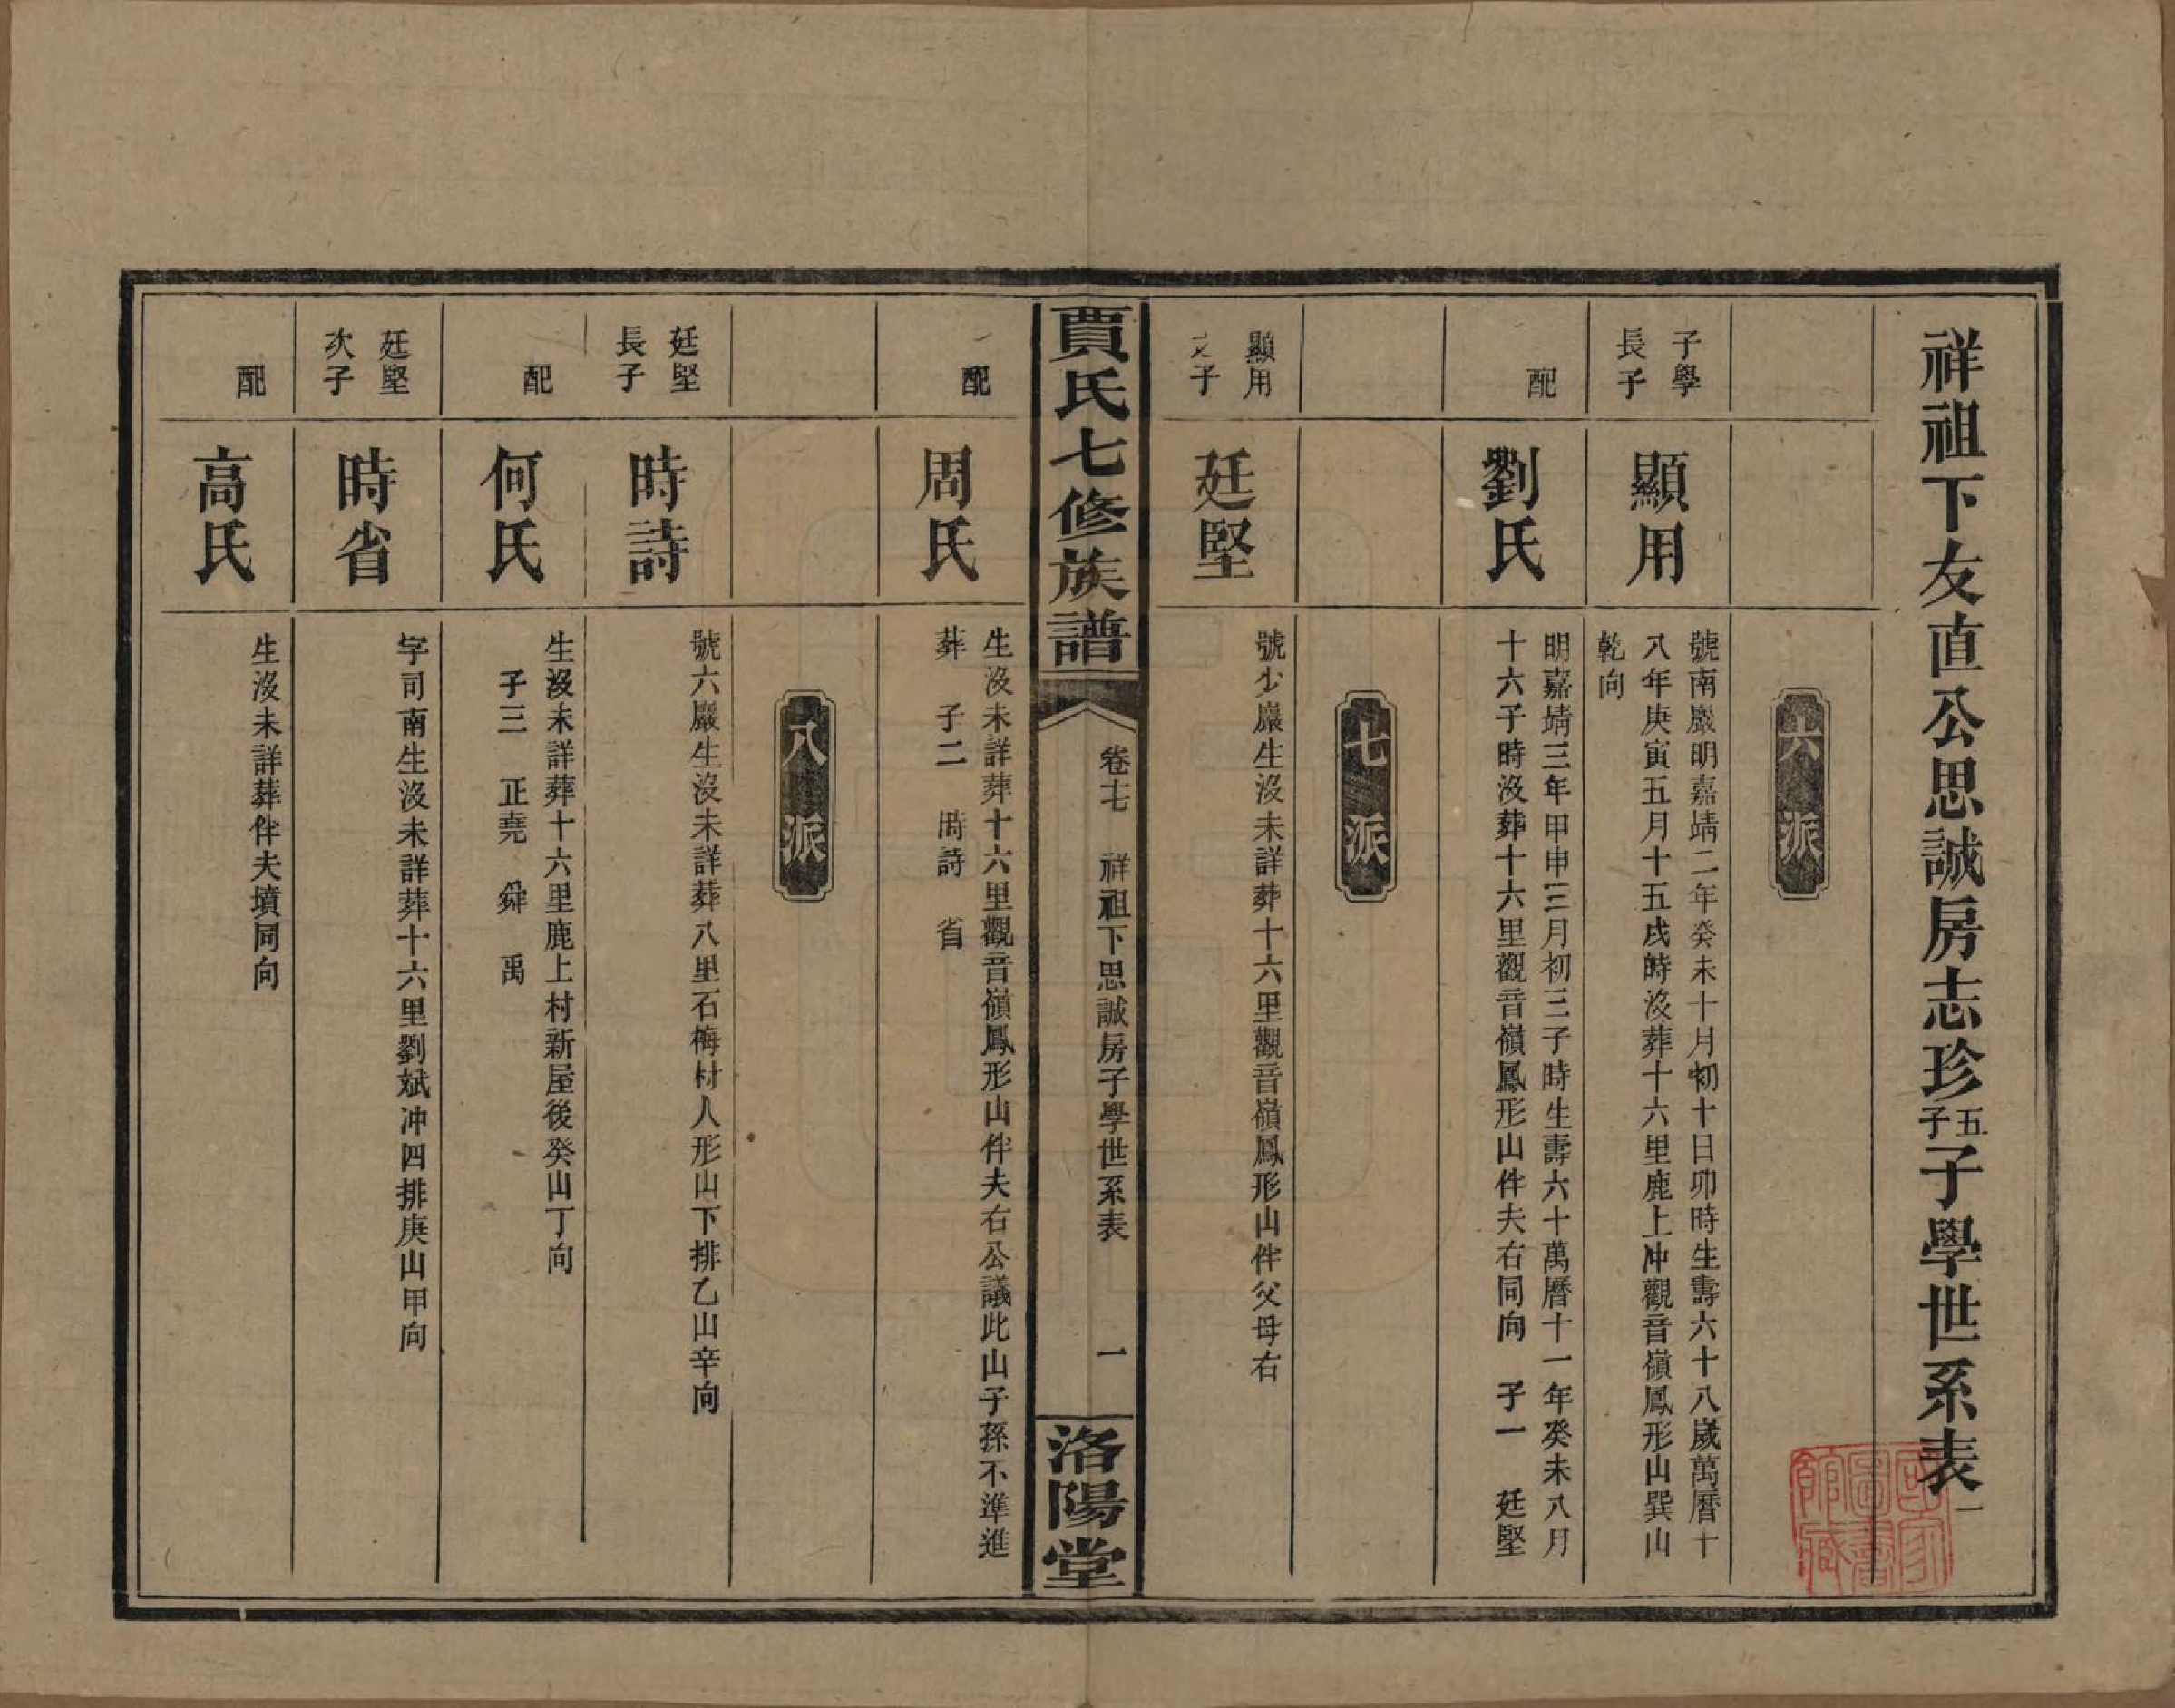 祥祖下友直公思誠房志珍五子子學世系表一
六派
子學長子
顯用
號南巖明嘉靖二年癸未十月初十日卯時生壽六十八歲萬曆十
八年庚寅五月十五戌時沒葬十六里鹿上冲觀音嶺鳳形山巽山
乾向
配
劉氏
明嘉靖三年甲申三月初三子時生壽六十萬曆十一年癸未八月
十六子時沒葬十六里觀音嶺鳳形山伴夫右同向 子一 廷堅
七派
顯用之子
廷堅
號少巖生沒未詳葬十六里觀音嶺鳳形山伴父母右
賈氏七修族譜
卷十七 祥祖下思誠房子學世系表 一
洛陽堂
配
周氏
生沒未詳葬十六里觀音嶺鳳形山伴夫右公議此山子孫不準進
葬 子二 時詩 省
八派
廷堅長子
時詩
號六巖生沒未詳葬八里石梅村人形山下排乙山辛向
配
何氏
生沒未詳葬十六里鹿上村新屋後癸山丁向
子三 正堯 舜 禹
廷堅次子
時省
字司南生沒未詳葬十六里劉斌冲四排庚山甲向
配
高氏
生沒未詳葬伴夫墳同向
國家圖書館藏